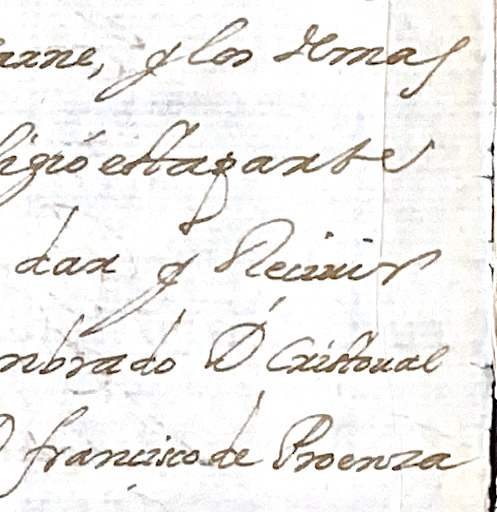 arne, y los demas
ligió esta parte
dar y Recivir
mbrado D. Cristoual
D francisco de Proenza